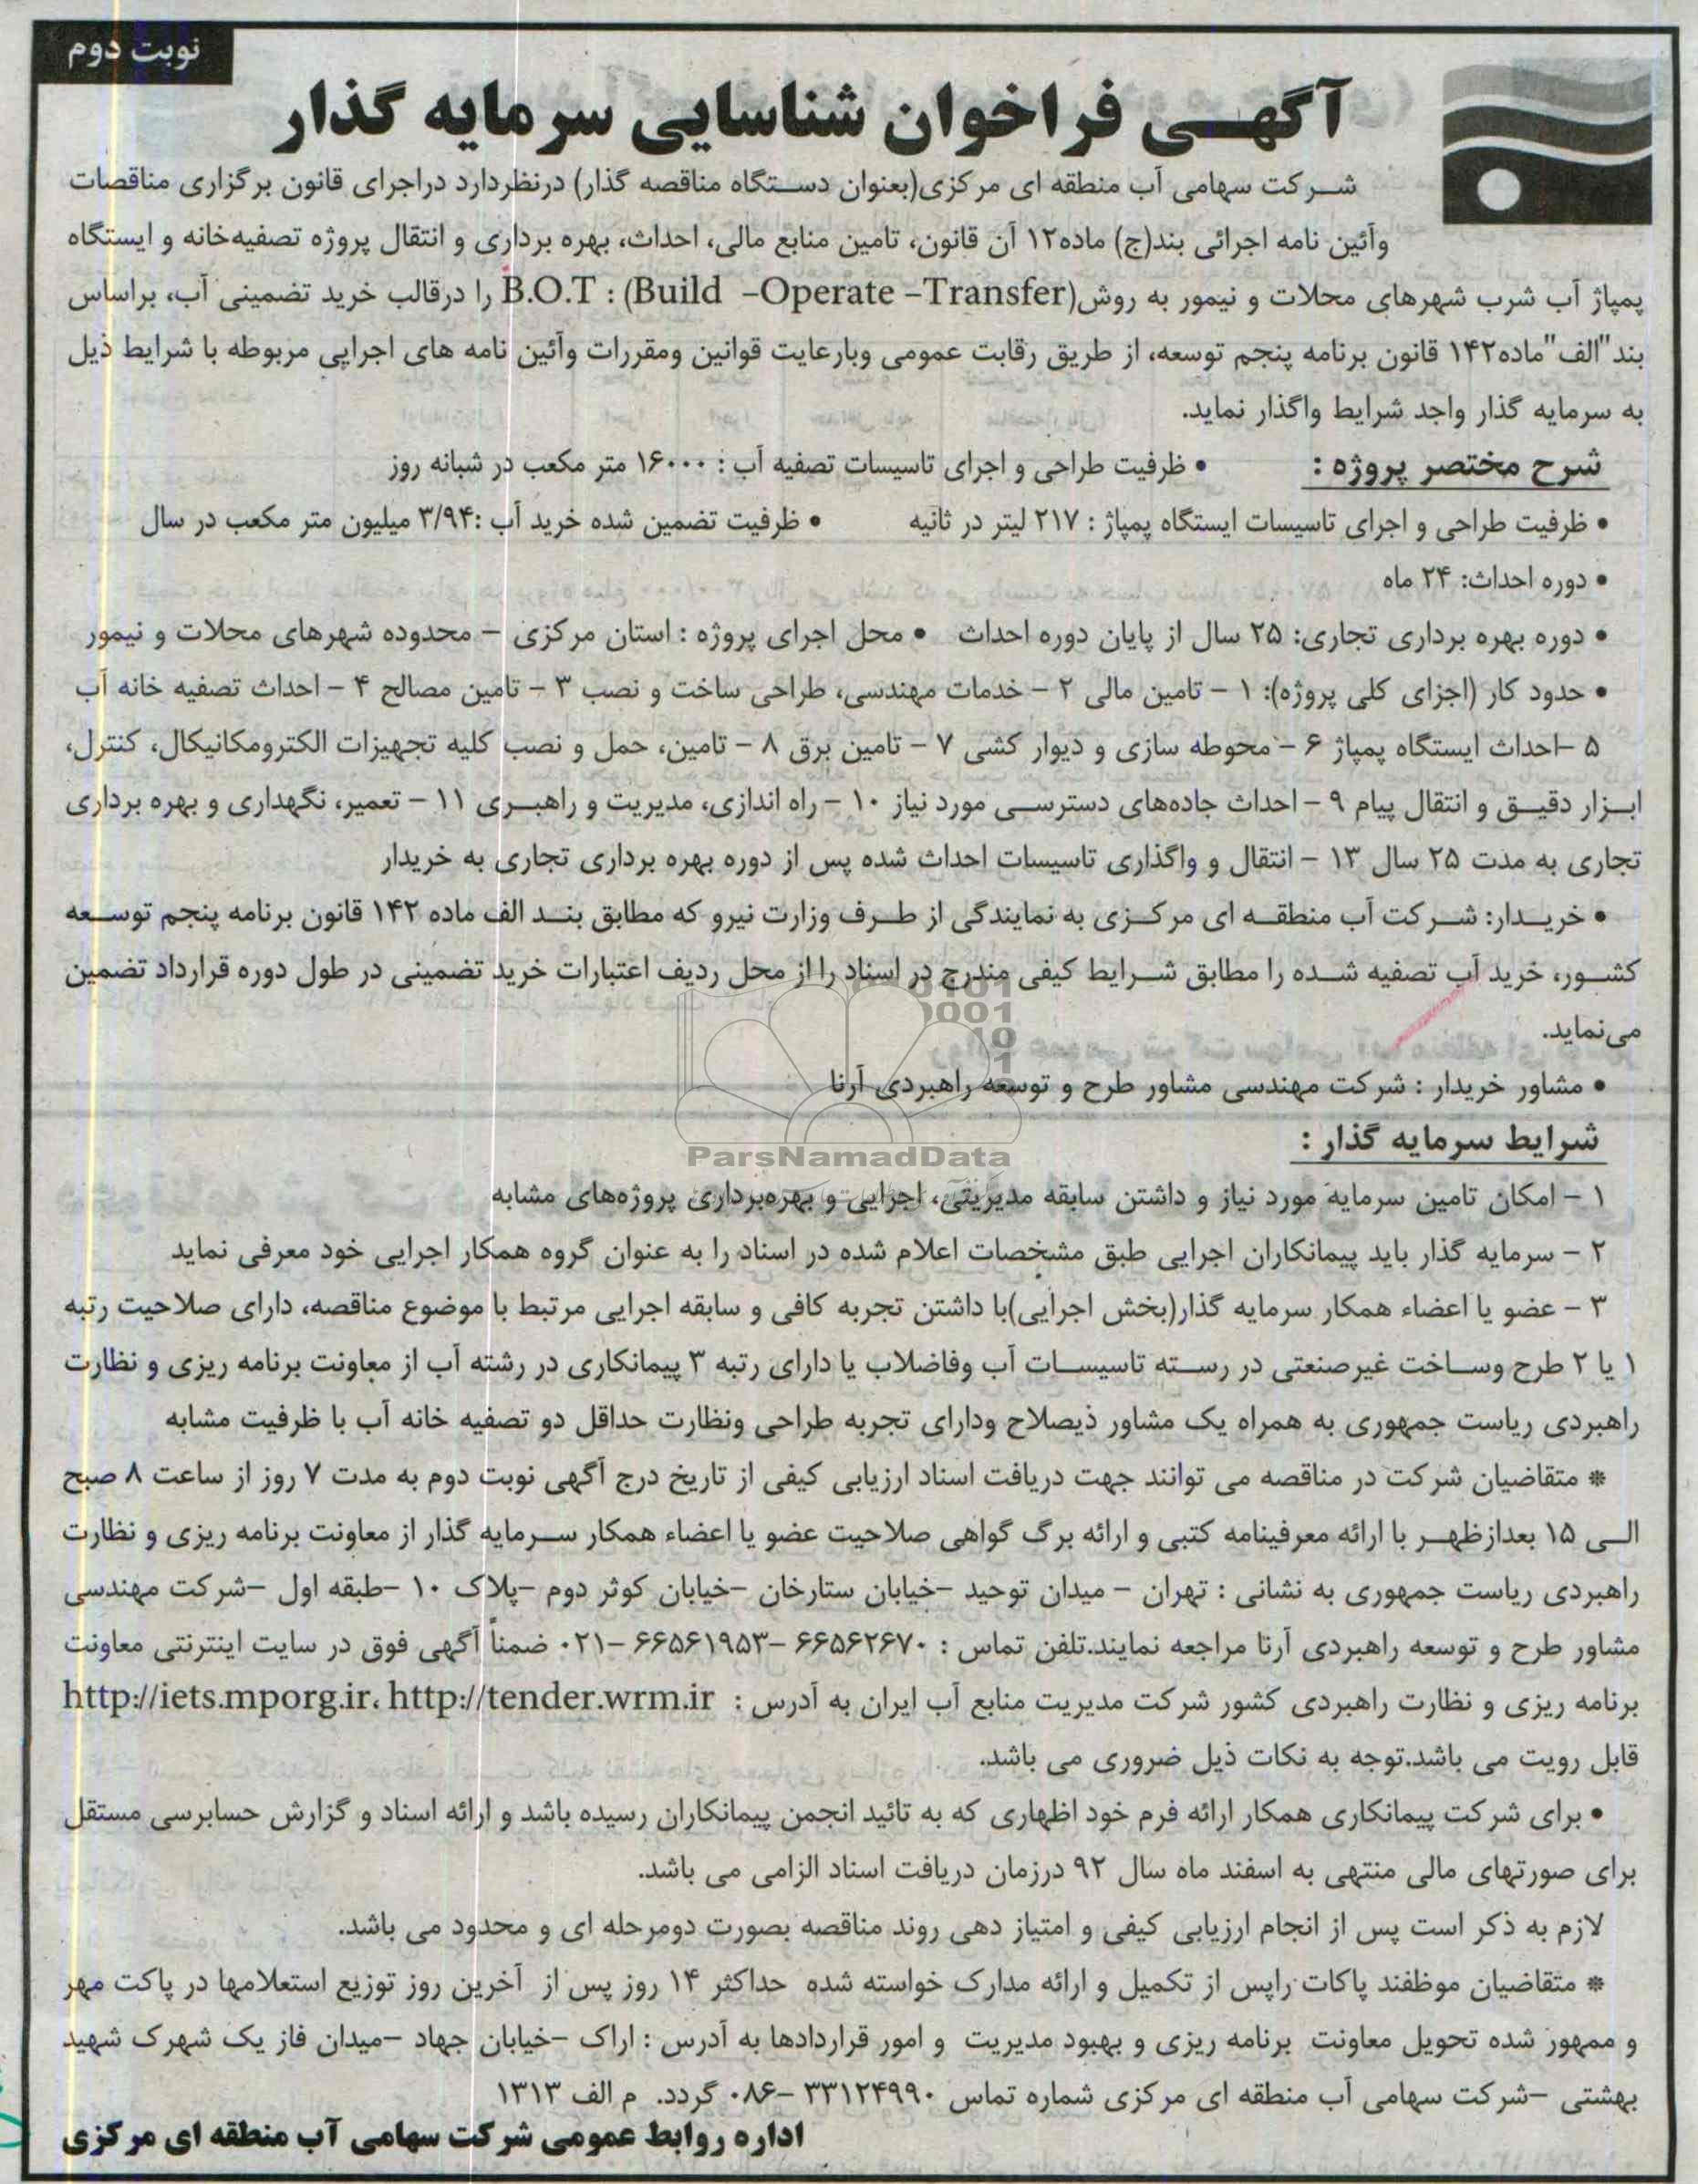 نوبت دوم
آگهی فراخوان شناسایی سرمایه گذار
شرکت سهامی آب منطقه ای مرکزی(بعنوان دستگاه مناقصه گذار) درنظردارد دراجرای قانون برگزاری مناقصات
وآئین نامه اجرائی بند(ج) ماده۱۲ آن قانون، تامین منابع مالی، احداث، بهره برداری و انتقال پروژه تصفیه‌خانه و ایستگاه
پمپاژ آب شرب شهرهای محلات و نیمور به روش(B.O.T : (Build –Operate –Transfer را درقالب خرید تضمینی آب، براساس
بند"الف"ماده۱۴۲ قانون برنامه پنجم توسعه، از طریق رقابت عمومی وبارعایت قوانین ومقررات وآئین نامه های اجرایی مربوطه با شرایط ذیل
به سرمایه گذار واجد شرایط واگذار نماید.
شرح مختصر پروژه : • ظرفیت طراحی و اجرای تاسیسات تصفیه آب : ۱۶۰۰۰ متر مکعب در شبانه روز
• ظرفیت طراحی و اجرای تاسیسات ایستگاه پمپاژ : ۲۱۷ لیتر در ثانیه • ظرفیت تضمین شده خرید آب :۳/۹۴ میلیون متر مکعب در سال
• دوره احداث: ۲۴ ماه
• دوره بهره برداری تجاری: ۲۵ سال از پایان دوره احداث • محل اجرای پروژه : استان مرکزی – محدوده شهرهای محلات و نیمور
• حدود کار (اجزای کلی پروژه): ۱ – تامین مالی ۲ – خدمات مهندسی، طراحی ساخت و نصب ۳ – تامین مصالح ۴ – احداث تصفیه خانه آب
۵ –احداث ایستگاه پمپاژ ۶ – محوطه سازی و دیوار کشی ۷ – تامین برق ۸ – تامین، حمل و نصب کلیه تجهیزات الکترومکانیکال، کنترل،
ابزار دقیق و انتقال پیام ۹ – احداث جاده‌های دسترسی مورد نیاز ۱۰ – راه اندازی، مدیریت و راهبری ۱۱ – تعمیر، نگهداری و بهره برداری
تجاری به مدت ۲۵ سال ۱۳ – انتقال و واگذاری تاسیسات احداث شده پس از دوره بهره برداری تجاری به خریدار
• خریدار: شرکت آب منطقه ای مرکزی به نمایندگی از طرف وزارت نیرو که مطابق بند الف ماده ۱۴۲ قانون برنامه پنجم توسعه
کشور، خرید آب تصفیه شده را مطابق شرایط کیفی مندرج در اسناد را از محل ردیف اعتبارات خرید تضمینی در طول دوره قرارداد تضمین
می‌نماید.
• مشاور خریدار : شرکت مهندسی مشاور طرح و توسعه راهبردی آرنا
شرایط سرمایه گذار :
ParsNamadData
۱ – امکان تامین سرمایه مورد نیاز و داشتن سابقه مدیریتی، اجرایی و بهره‌برداری پروژه‌های مشابه
۲ – سرمایه گذار باید پیمانکاران اجرایی طبق مشخصات اعلام شده در اسناد را به عنوان گروه همکار اجرایی خود معرفی نماید
۳ – عضو یا اعضاء همکار سرمایه گذار(بخش اجرایی)با داشتن تجربه کافی و سابقه اجرایی مرتبط با موضوع مناقصه، دارای صلاحیت رتبه
۱ یا ۲ طرح وساخت غیرصنعتی در رسته تاسیسات آب وفاضلاب یا دارای رتبه ۳ پیمانکاری در رشته آب از معاونت برنامه ریزی و نظارت
راهبردی ریاست جمهوری به همراه یک مشاور ذیصلاح ودارای تجربه طراحی ونظارت حداقل دو تصفیه خانه آب با ظرفیت مشابه
* متقاضیان شرکت در مناقصه می توانند جهت دریافت اسناد ارزیابی کیفی از تاریخ درج آگهی نوبت دوم به مدت ۷ روز از ساعت ۸ صبح
الی ۱۵ بعدازظهر با ارائه معرفینامه کتبی و ارائه برگ گواهی صلاحیت عضو یا اعضاء همکار سرمایه گذار از معاونت برنامه ریزی و نظارت
راهبردی ریاست جمهوری به نشانی : تهران – میدان توحید –خیابان ستارخان –خیابان کوثر دوم –پلاک ۱۰ –طبقه اول –شرکت مهندسی
مشاور طرح و توسعه راهبردی آرنا مراجعه نمایند.تلفن تماس : ۶۶۵۶۲۶۷۰ –۶۶۵۶۱۹۵۳ –۰۲۱ ضمناً آگهی فوق در سایت اینترنتی معاونت
برنامه ریزی و نظارت راهبردی کشور شرکت مدیریت منابع آب ایران به آدرس : http://iets.mporg.ir، http://tender.wrm.ir
قابل رویت می باشد.توجه به نکات ذیل ضروری می باشد.
• برای شرکت پیمانکاری همکار ارائه فرم خود اظهاری که به تائید انجمن پیمانکاران رسیده باشد و ارائه اسناد و گزارش حسابرسی مستقل
برای صورتهای مالی منتهی به اسفند ماه سال ۹۲ درزمان دریافت اسناد الزامی می باشد.
لازم به ذکر است پس از انجام ارزیابی کیفی و امتیاز دهی روند مناقصه بصورت دومرحله ای و محدود می باشد.
* متقاضیان موظفند پاکات راپس از تکمیل و ارائه مدارک خواسته شده حداکثر ۱۴ روز پس از آخرین روز توزیع استعلامها در پاکت مهر
و ممهور شده تحویل معاونت برنامه ریزی و بهبود مدیریت و امور قراردادها به آدرس : اراک –خیابان جهاد –میدان فاز یک شهرک شهید
بهشتی –شرکت سهامی آب منطقه ای مرکزی شماره تماس ۳۳۱۲۴۹۹۰ –۰۸۶ گردد. م الف ۱۳۱۳
اداره روابط عمومی شرکت سهامی آب منطقه ای مرکزی